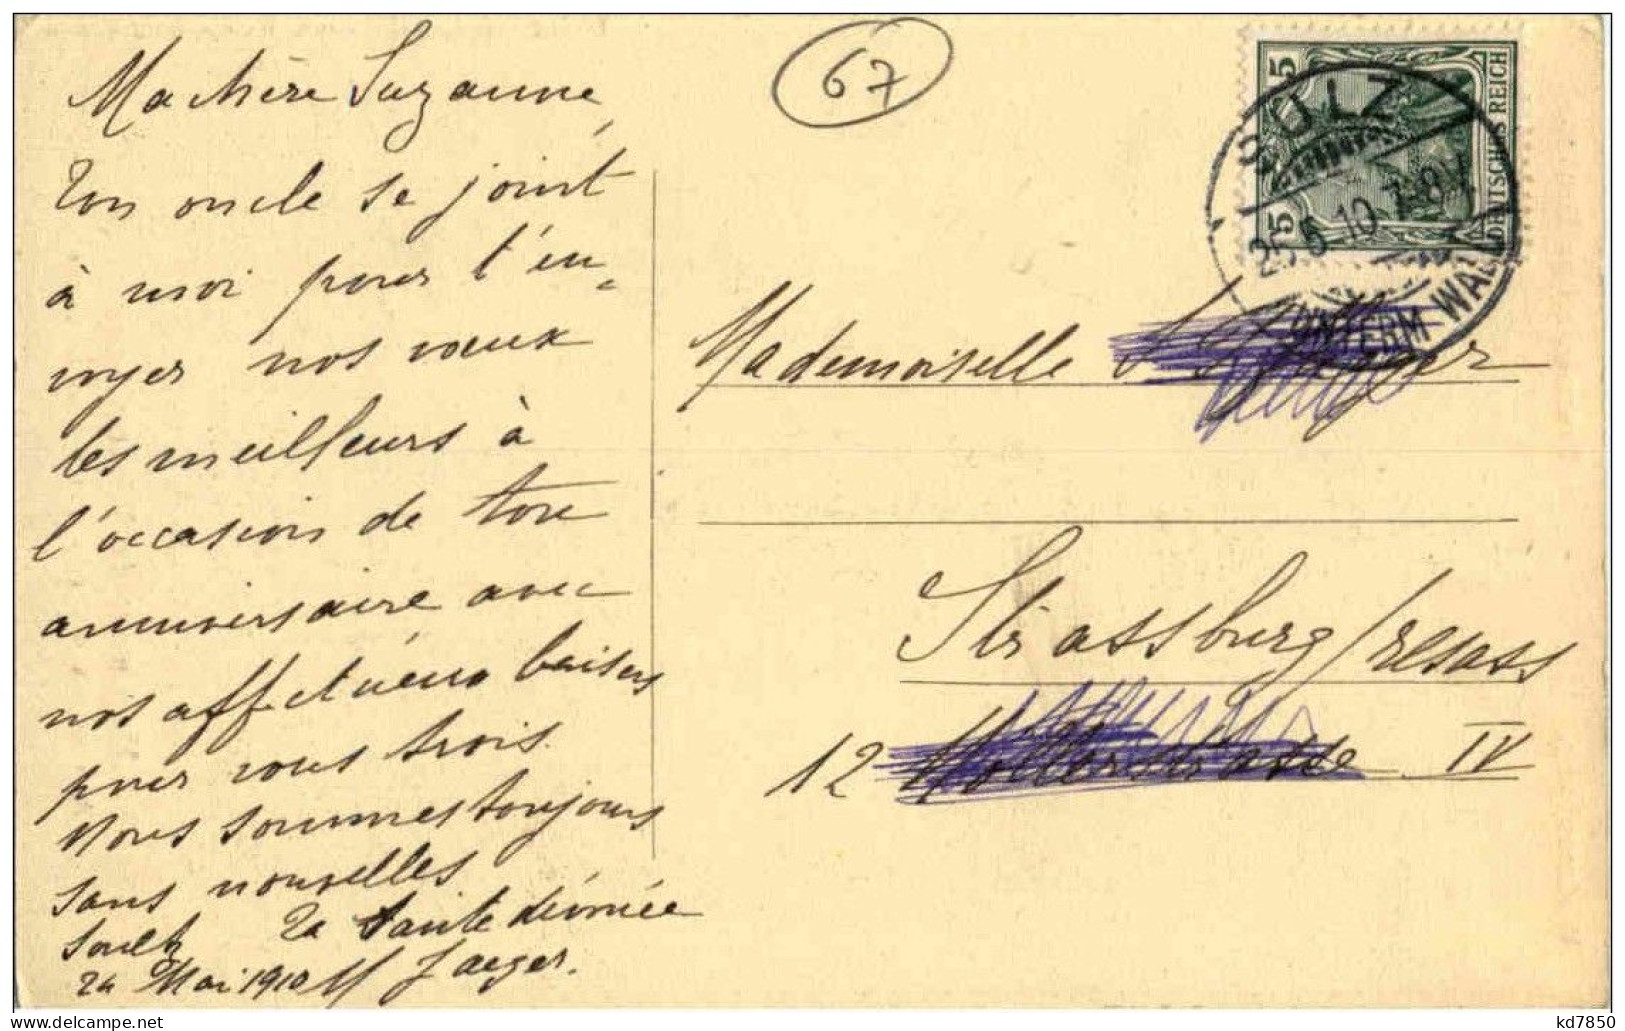 Ma chère Suzanne,
Ton oncle se joint
à moi pour t'en-
voyer nos voeux
les meilleurs à
l'occasion de ton
anniversaire avec
nos affectueux baisers
pour vous trois.
Nous sommes toujours
sans nouvelles
Ta tante dévouée
Soultz
24 Mai 1910 M Jaeger.
67
5 5
DEUTSCHES REICH
SULZ
25.5.10.7-8V
UNTERM WALD
Mademoiselle S. Jaeger
Strassburg/Elsass
12 IV
kd7850